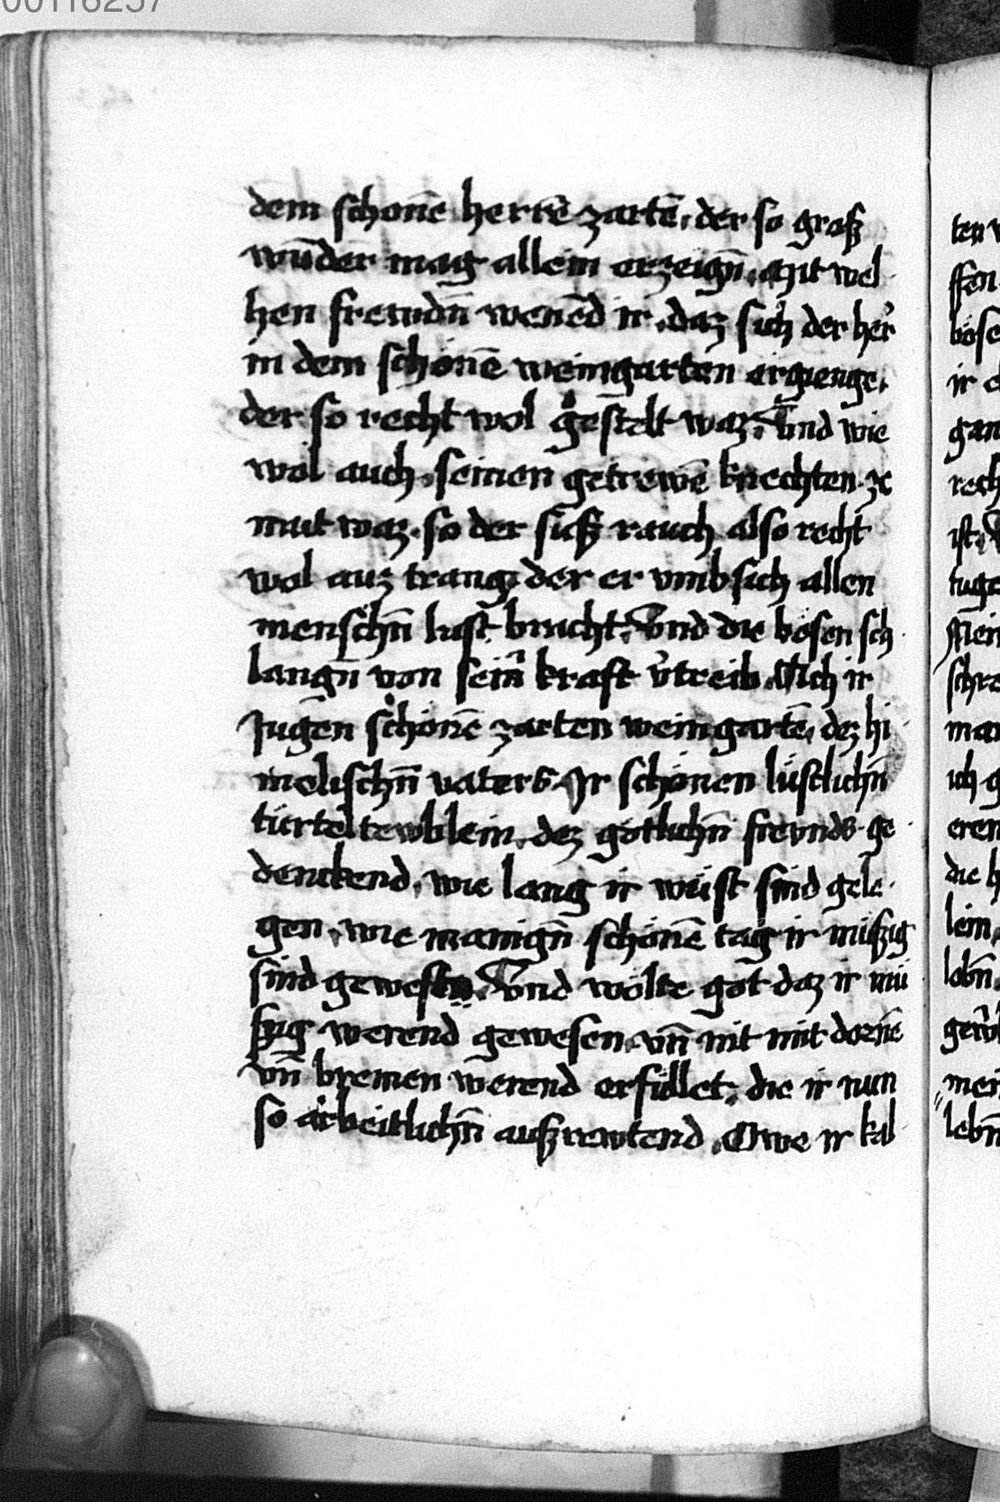 00116257
dem schonē herrē zartē. der so groß
wūder mag allein erzeign̄. Mit wel
hen frewdn̄ wenēd ir. daz sich der her᷑
in dem schönē weingarten ergienge.
der so recht wol gestelt waz. Vnd wie
wol auch. seinen getrewē knechten ze
mut waz. so der süß rauch also recht
wol auz trang. der er vmb sich allen
menschn̄ lust bracht. Vnd die bösen sch
langn̄ von sein᷑ kraft v᷑treib. Ach ir
Jungen schönē zarten weingartē. dez hi
melischn̄ vaters. Ir schönen lüstlichn̄
türteltewblein. dez götlichn̄ frevnds. ge
denckend. wie lang ir wüst sind gele
gen. wie manign̄ schönē tag ir müßig
sind gewesen. Vnd wölte got daz ir mü
ßig werend gewesen. vn̄ nit mit dornē
vn̄ bremen werend erfüllet. die ir nun
so arbeitlichn̄ außrewtend. Owe ir kal
ten
ffen
böse
ir
gan
rech
ist.
tuge
schre
man
ich
eren
die
lein.
lebn̄.
mei
lebn̄